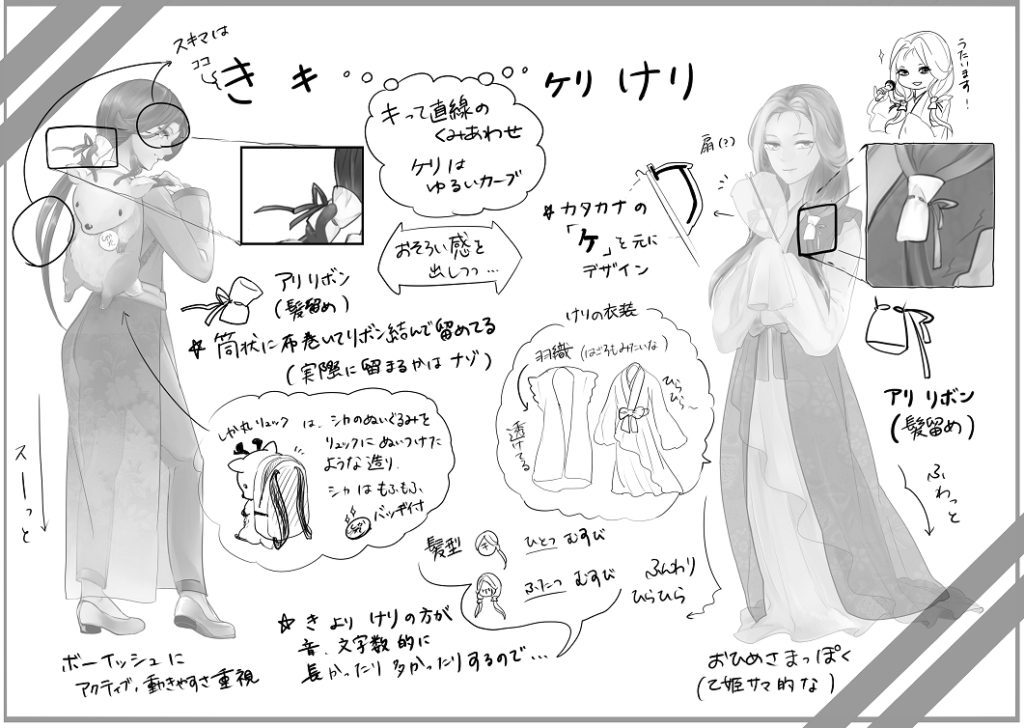 スキマは
ココ
き キ
ケリ けり
うたいます!
キって直線の
くみあわせ
ケリは
ゆるいカーブ
おそろい感を
出しつつ…
扇(?)
☆ カタカナの
「ケ」を元に
デザイン
アリ リボン
(髪留め)
☆ 筒状に布巻いてリボン結んで留めてる
(実際に留まるかはナゾ)
けりの衣装
羽織(はごろもみたいな)
透けてる
ひらひら〜
アリ リボン
(髪留め)
しか丸リュックは、シカのぬいぐるみを
リュックにぬいつけた
ような造り.
シカはもふもふ、
バッヂ付
スーっと
ふわっと
髪型
キ
ひとつ むすび
ふたつ むすび
ふんわり
ひらひら
☆ き より けりの方が
音、文字数的に
長かったり多かったりするので…
ボーイッシュに
アクティブ、動きやすさ重視
おひめさまっぽく
(乙姫サマ的な)